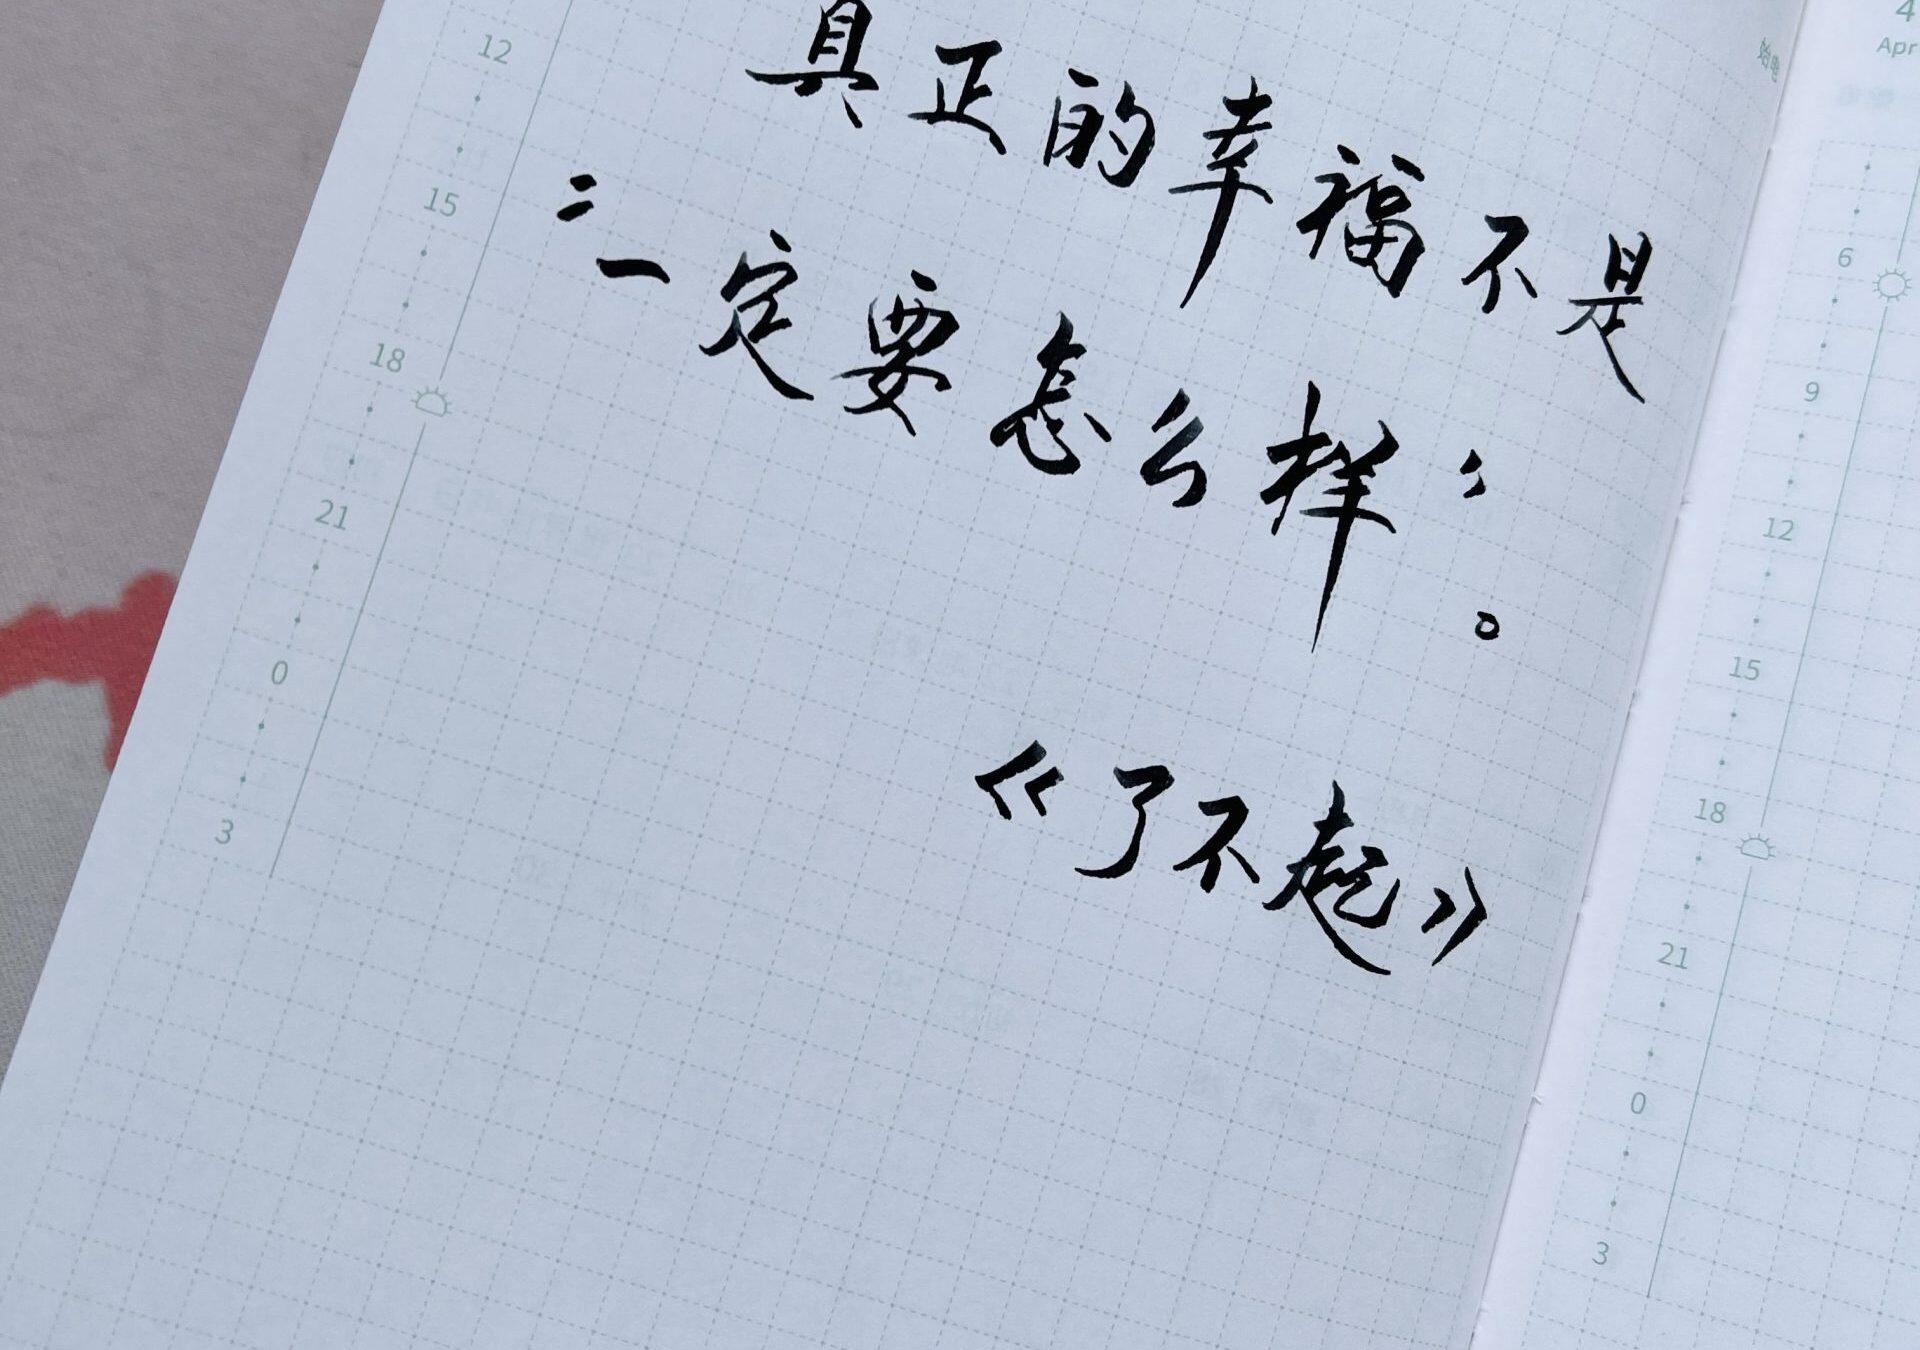 真正的幸福不是
“一定要怎么样”。
《了不起》
12
15
18
21
0
3
4
Apr
6
9
12
15
18
21
0
3